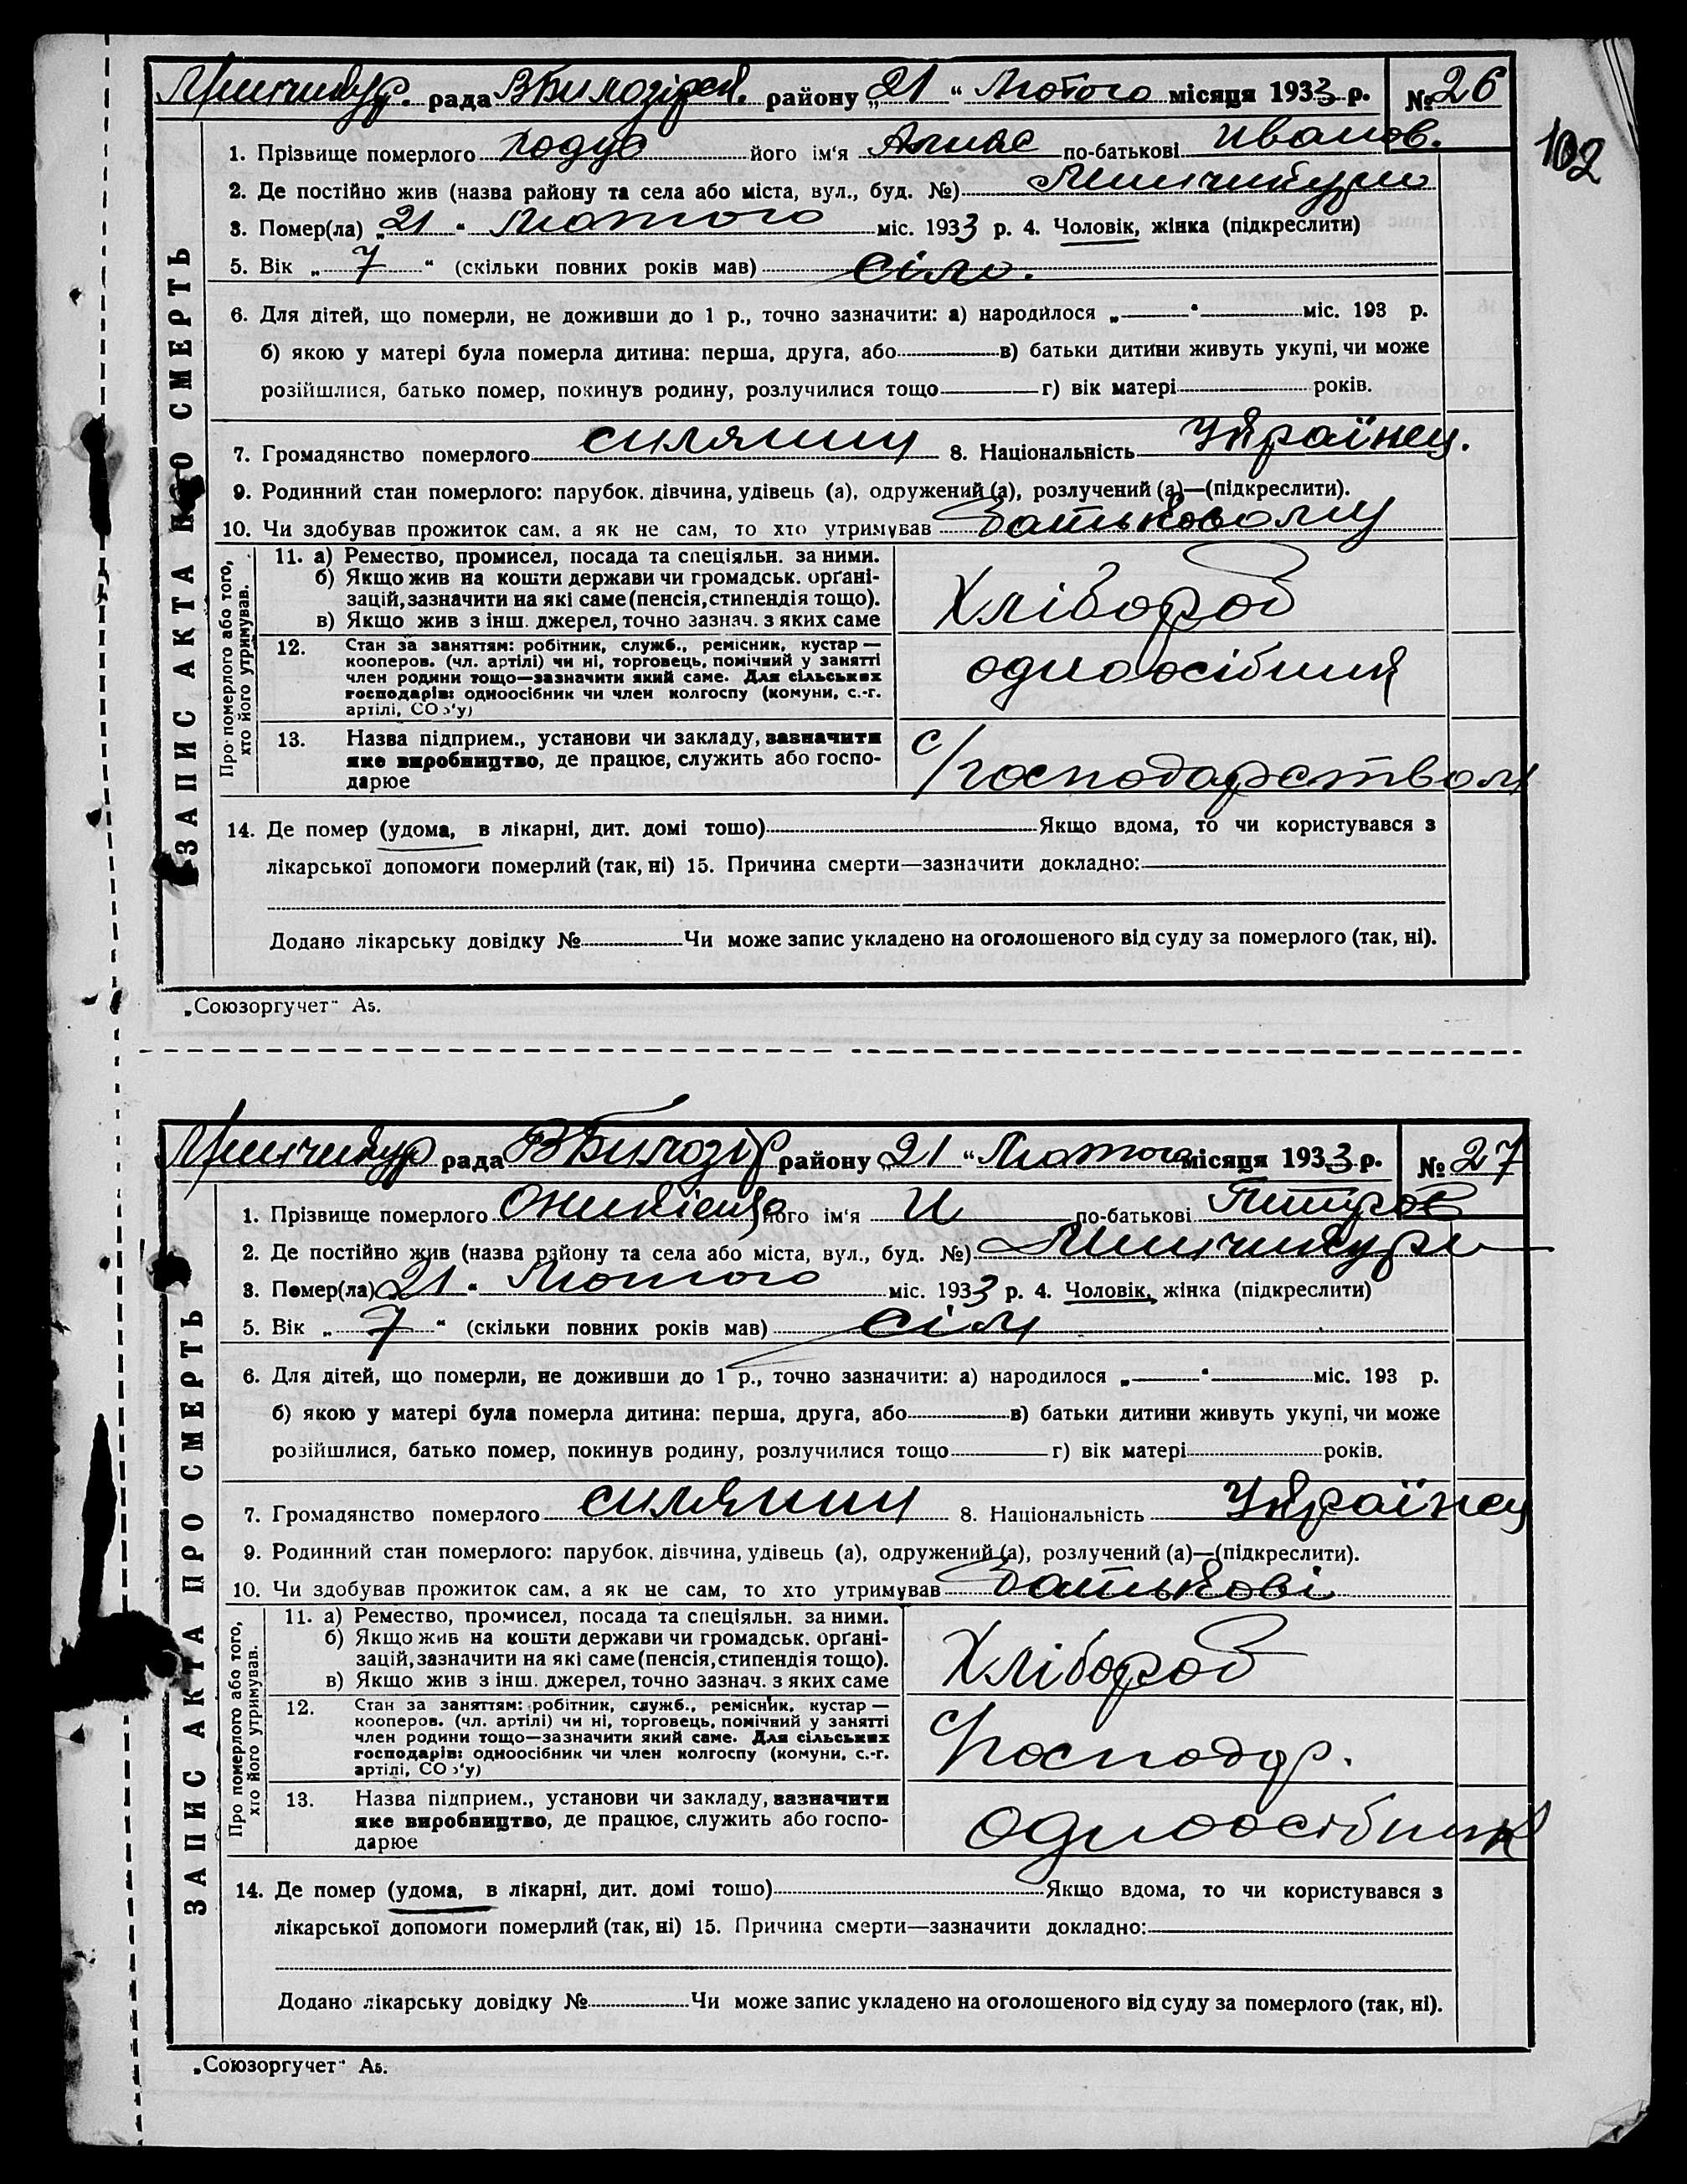 рада району „21“ Лютого місяця 1933 р. № 26
102
1. Прізвище померлого Ходус його ім'я по-батькові Иванов.
2. Де постійно жив (назва району та села або міста, вул., буд. №) Минчикури
3. Помер(ла) „21“ Лютого міс. 1933 р. 4. Чоловік, жінка (підкреслити)
5. Вік „7“ (скільки повних років мав) сім.
6. Для дітей, що померли, не доживши до 1 р., точно зазначити: а) народилося „ “ міс. 193 р.
б) якою у матері була померла дитина: перша, друга, або в) батьки дитини живуть укупі, чи може
розійшлися, батько помер, покинув родину, розлучилися тощо г) вік матері років.
7. Громадянство померлого силянин 8. Національність Українец.
9. Родинний стан померлого: парубок, дівчина, удівець (а), одружений (а), розлучений (а)—(підкреслити).
10. Чи здобував прожиток сам, а як не сам, то хто утримував
ЗАПИС АКТА ПРО СМЕРТЬ
Про померлого або того, хто його утримував.
11. а) Ремество, промисел, посада та спеціяльн. за ними.
б) Якщо жив на кошти держави чи громадськ. орґані-
зацій, зазначити на які саме (пенсія, стипендія тощо).
в) Якщо жив з інш. джерел, точно зазнач. з яких саме
Хлібороб
12. Стан за заняттям: робітник, служб., ремісник, кустар —
кооперов. (чл. артілі) чи ні, торговець, помічний у занятті
член родини тощо—зазначити який саме. Для сільських
господарів: одноосібник чи член колгоспу (комуни, с.-г.
артілі, СОЗ'у)
одноосібник
13. Назва підприєм., установи чи закладу, зазначити
яке виробництво, де працює, служить або госпо-
дарює
с/господарством
14. Де помер (удома, в лікарні, дит. домі тошо) Якщо вдома, то чи користувався з
лікарської допомоги померлий (так, ні) 15. Причина смерти—зазначити докладно:
Додано лікарську довідку № Чи може запис укладено на оголошеного від суду за померлого (так, ні).
„Союзоргучет“ А5.
рада району „21“ Лютого місяця 1933 р. № 27
1. Прізвище померлого його ім'я И по-батькові Питров
2. Де постійно жив (назва району та села або міста, вул., буд. №) Минчикури
3. Помер(ла) „21“ Лютого міс. 1933 р. 4. Чоловік, жінка (підкреслити)
5. Вік „7“ (скільки повних років мав) сім
6. Для дітей, що померли, не доживши до 1 р., точно зазначити: а) народилося „ “ міс. 193 р.
б) якою у матері була померла дитина: перша, друга, або в) батьки дитини живуть укупі, чи може
розійшлися, батько помер, покинув родину, розлучилися тощо г) вік матері років.
7. Громадянство померлого силянин 8. Національність Українец
9. Родинний стан померлого: парубок, дівчина, удівець (а), одружений (а), розлучений (а)—(підкреслити).
10. Чи здобував прожиток сам, а як не сам, то хто утримував Батькові
ЗАПИС АКТА ПРО СМЕРТЬ
Про померлого або того, хто його утримував.
11. а) Ремество, промисел, посада та спеціяльн. за ними.
б) Якщо жив на кошти держави чи громадськ. орґані-
зацій, зазначити на які саме (пенсія, стипендія тощо).
в) Якщо жив з інш. джерел, точно зазнач. з яких саме
Хлібороб
12. Стан за заняттям: робітник, служб., ремісник, кустар —
кооперов. (чл. артілі) чи ні, торговець, помічний у занятті
член родини тощо—зазначити який саме. Для сільських
господарів: одноосібник чи член колгоспу (комуни, с.-г.
артілі, СОЗ'у)
с/господар.
13. Назва підприєм., установи чи закладу, зазначити
яке виробництво, де працює, служить або госпо-
дарює
одноосібник
14. Де помер (удома, в лікарні, дит. домі тошо) Якщо вдома, то чи користувався з
лікарської допомоги померлий (так, ні) 15. Причина смерти—зазначити докладно:
Додано лікарську довідку № Чи може запис укладено на оголошеного від суду за померлого (так, ні).
„Союзоргучет“ А5.